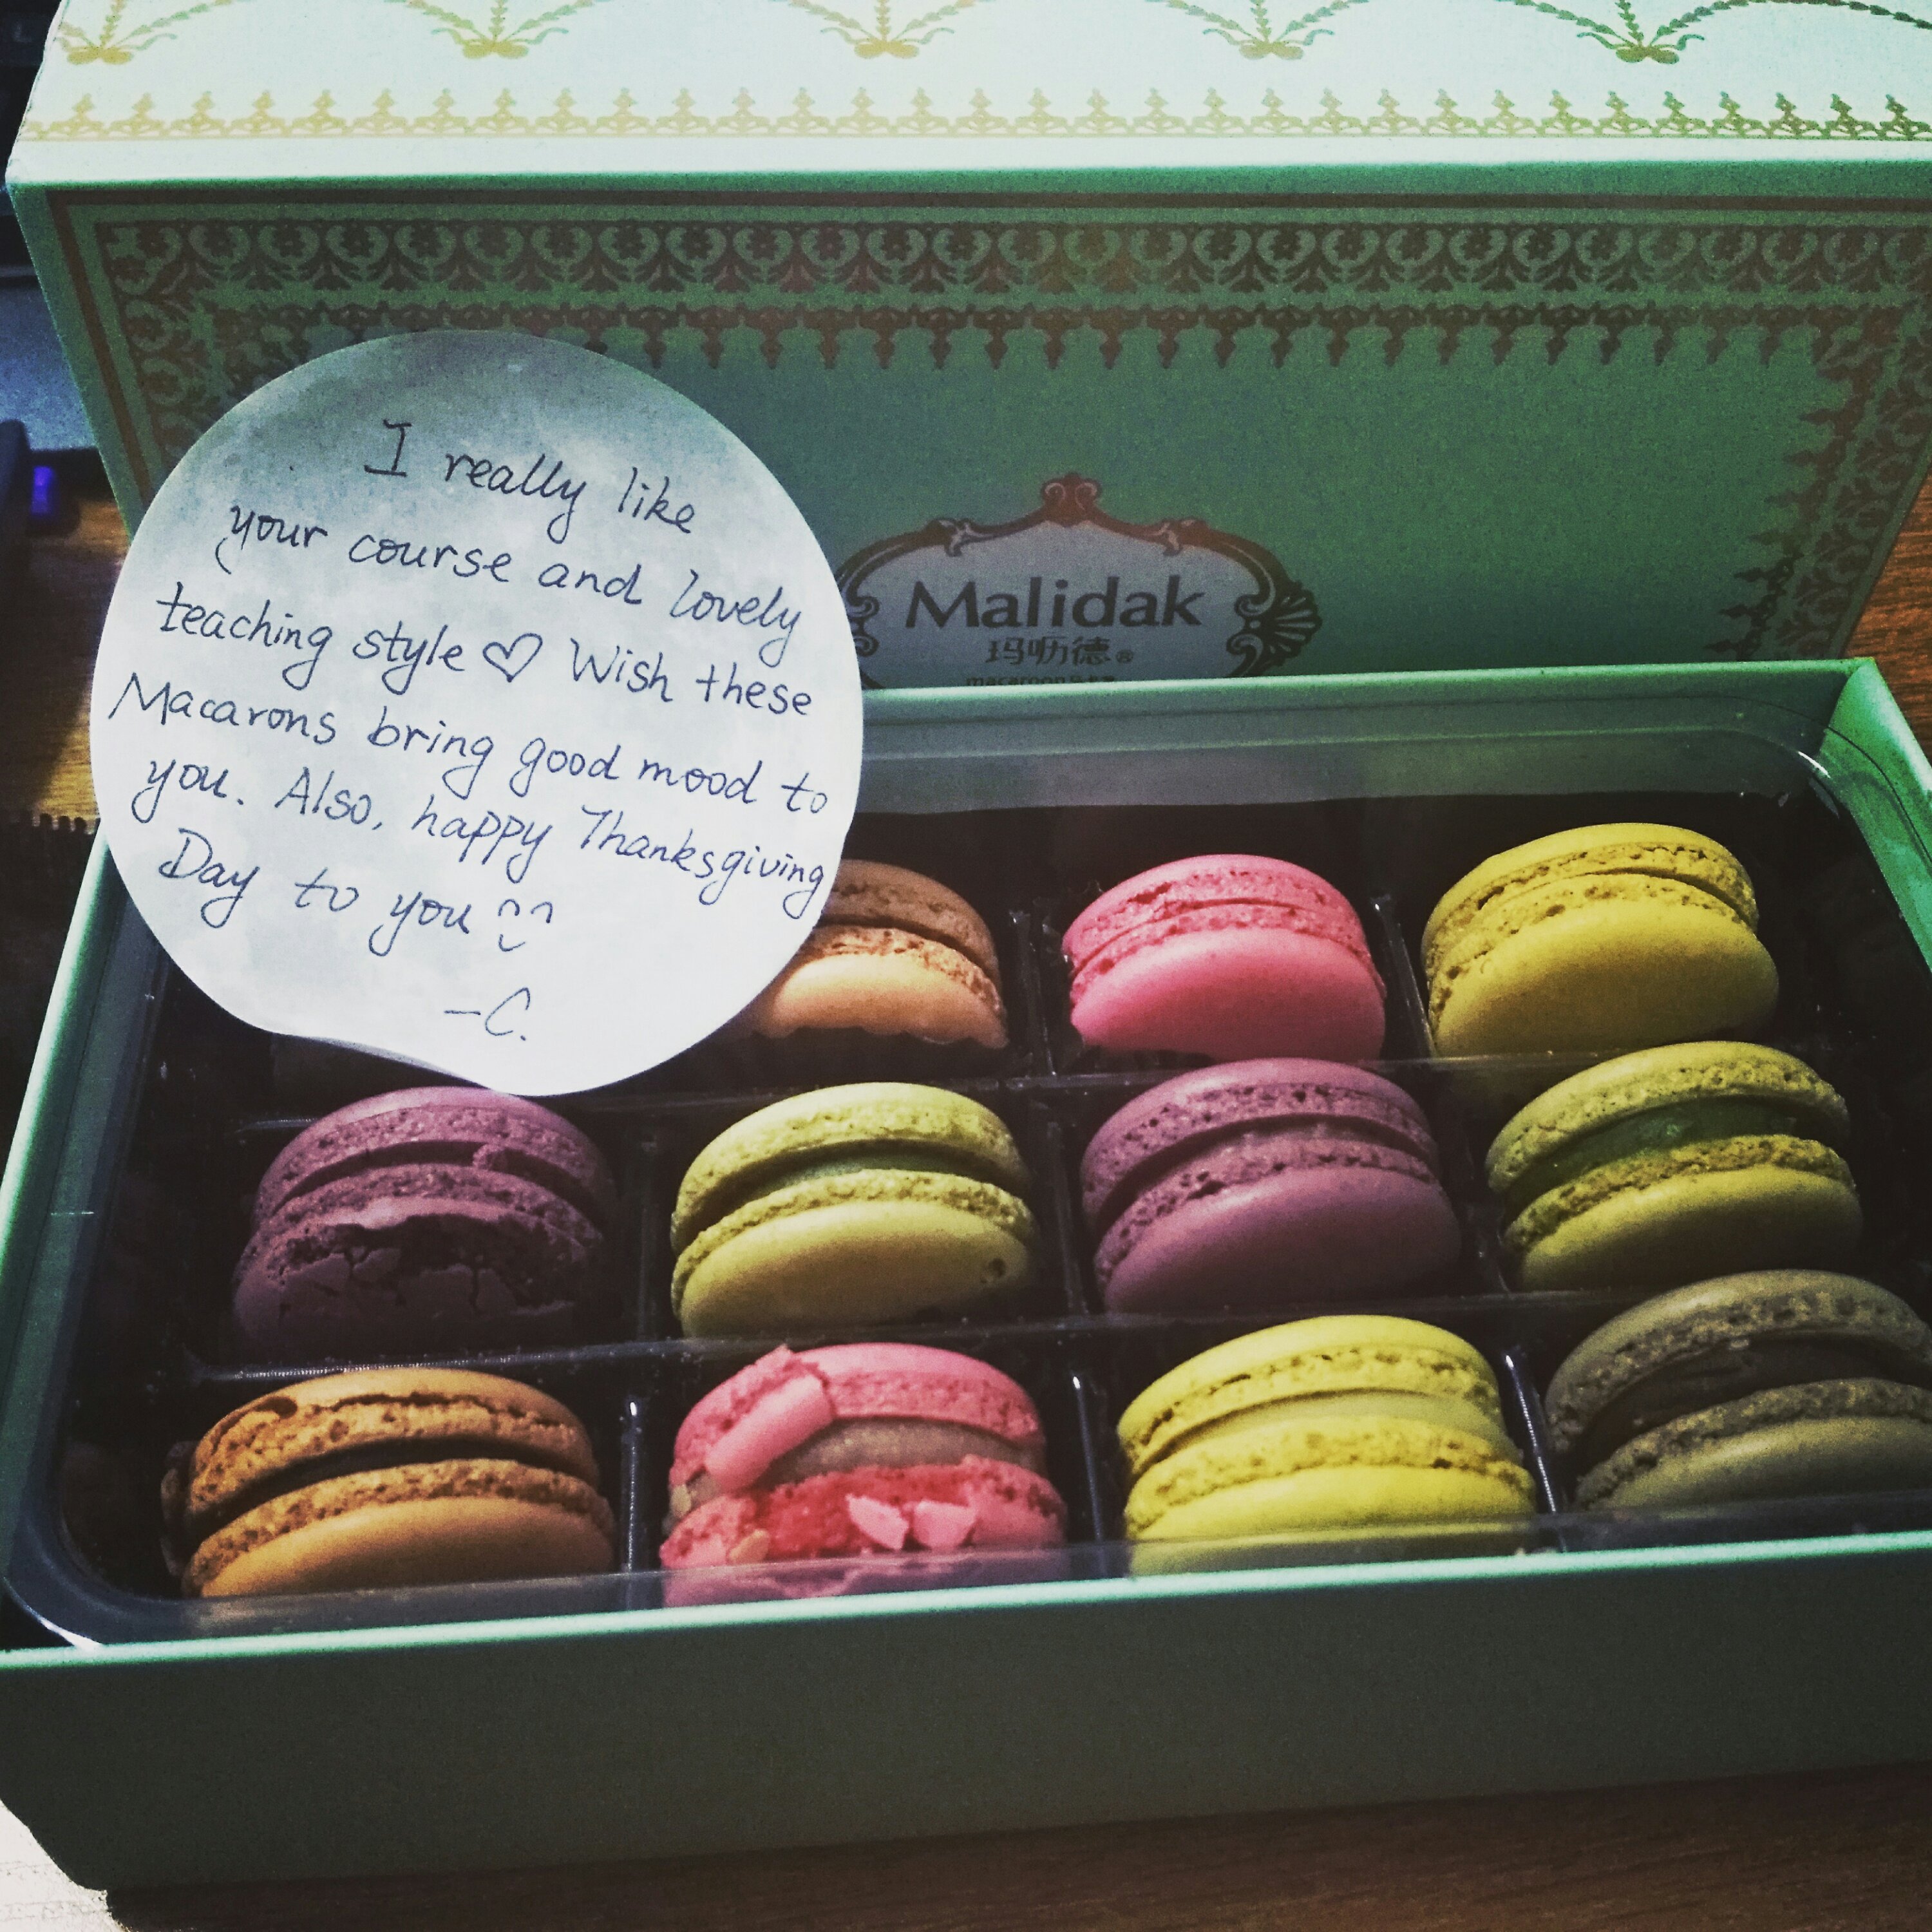 I really like
your course and lovely
teaching style ♡ Wish these
Macarons bring good mood to
you. Also, happy Thanksgiving
Day to you
-C.
Malidak
玛呖德®
macaroon